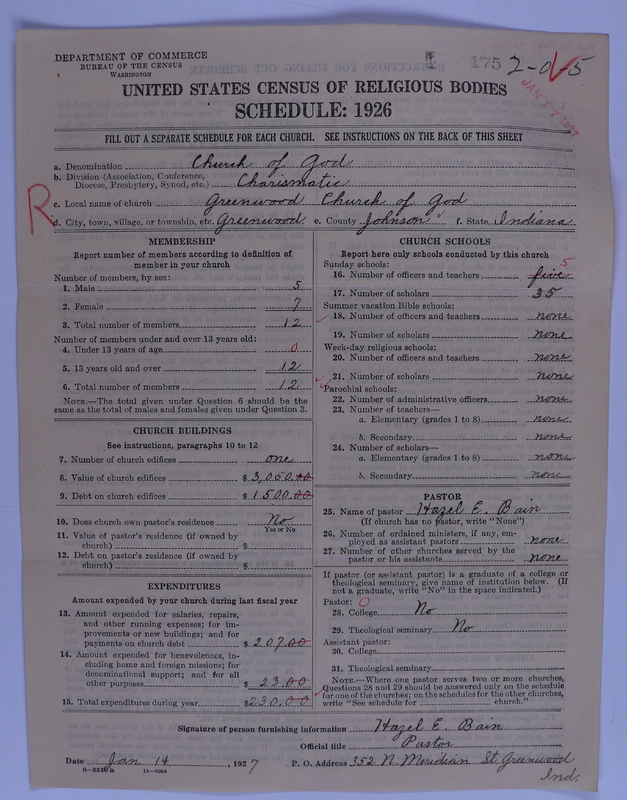 DEPARTMENT OF COMMERCE
BUREAU OF THE CENSUS
WASHINGTON
175 2-0 5
JAN 17 1927
UNITED STATES CENSUS OF RELIGIOUS BODIES
SCHEDULE: 1926
FILL OUT A SEPARATE SCHEDULE FOR EACH CHURCH. SEE INSTRUCTIONS ON THE BACK OF THIS SHEET
a. Denomination Church of God
b. Division (Association, Conference, Diocese, Presbytery, Synod, etc.) Charismatic
c. Local name of church Greenwood Church of God
R
d. City, town, village, or township, etc. Greenwood e. County Johnson f. State Indiana
MEMBERSHIP
Report number of members according to definition of
member in your church
Number of members, by sex:
1. Male 5
2. Female 7
3. Total number of members 12
Number of members under and over 13 years old:
4. Under 13 years of age 0
5. 13 years old and over 12
6. Total number of members 12
NOTE.—The total given under Question 6 should be
same as the total of males and females given under Question 3.
CHURCH BUILDINGS
See instructions, paragraphs 10 to 12
7. Number of church edifices one
8. Value of church edifices $ 3,050.00
9. Debt on church edifices $ 1500.00
10. Does church own pastor's residence No
Yes or No
11. Value of pastor's residence (if owned by
church) $
12. Debt on pastor's residence (if owned by
church) $
EXPENDITURES
Amount expended by your church during last fiscal year
13. Amount expended for salaries, repairs,
and other running expenses; for im-
provements or new buildings; and for
payments on church debt $ 207.00
14. Amount expended for benevolences, in-
cluding home and foreign missions; for
denominational support; and for all
other purposes $ 23.00
15. Total expenditures during year $230.00
CHURCH SCHOOLS
Report here only schools conducted by this church
Sunday schools: 5
16. Number of officers and teachers five
17. Number of scholars 35
Summer vacation Bible schools:
18. Number of officers and teachers none
19. Number of scholars none
Week-day religious schools:
20. Number of officers and teachers none
21. Number of scholars none
Parochial schools:
22. Number of administrative officers none
23. Number of teachers—
a. Elementary (grades 1 to 8) none
b. Secondary none
24. Number of scholars—
a. Elementary (grades 1 to 8) none
b. Secondary none
PASTOR
25. Name of pastor Hazel E. Bain
(If church has no pastor, write "None")
26. Number of ordained ministers, if any, em-
ployed as assistant pastors none
27. Number of other churches served by the
pastor or his assistants none
If pastor (or assistant pastor) is a graduate of a college or
theological seminary, give name of institution below. (If
not a graduate, write "No" in the space indicated.)
Pastor: 0
28. College No
29. Theological seminary No
Assistant pastor:
30. College
31. Theological seminary
NOTE.—Where one pastor serves two or more churches,
Questions 28 and 29 should be answered only on the schedule
for one of the churches; on the schedules for the other churches,
write "See schedule for church."
Signature of person furnishing information Hazel E. Bain
Official title Pastor
Date Jan 14, 1927 P. O. Address 352 N. Meridian St. Greenwood
Ind.
8—5516a 11—9034